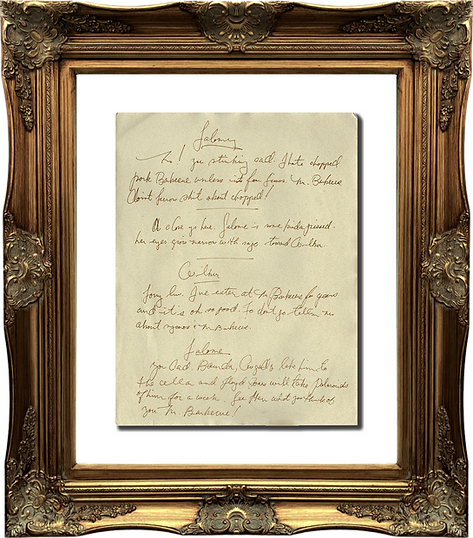 Salome
No! You stinking cad. I hate chopped
pork Barbecue unless it's from Mr. Barbecue
Don't know shit about chopped!
A close up here. Salome is one kinda pissed.
her eyes grow narrow with rage toward
Sorry luv. I've eaten at Mr Barbecue for years
and it's oh so good. So don't go tellin me
about Mr Barbecue.
Salome
You Cad. take him to
the cella and Floyd will take
of him for a week. See then what you think of
you Mr. Barbecue!